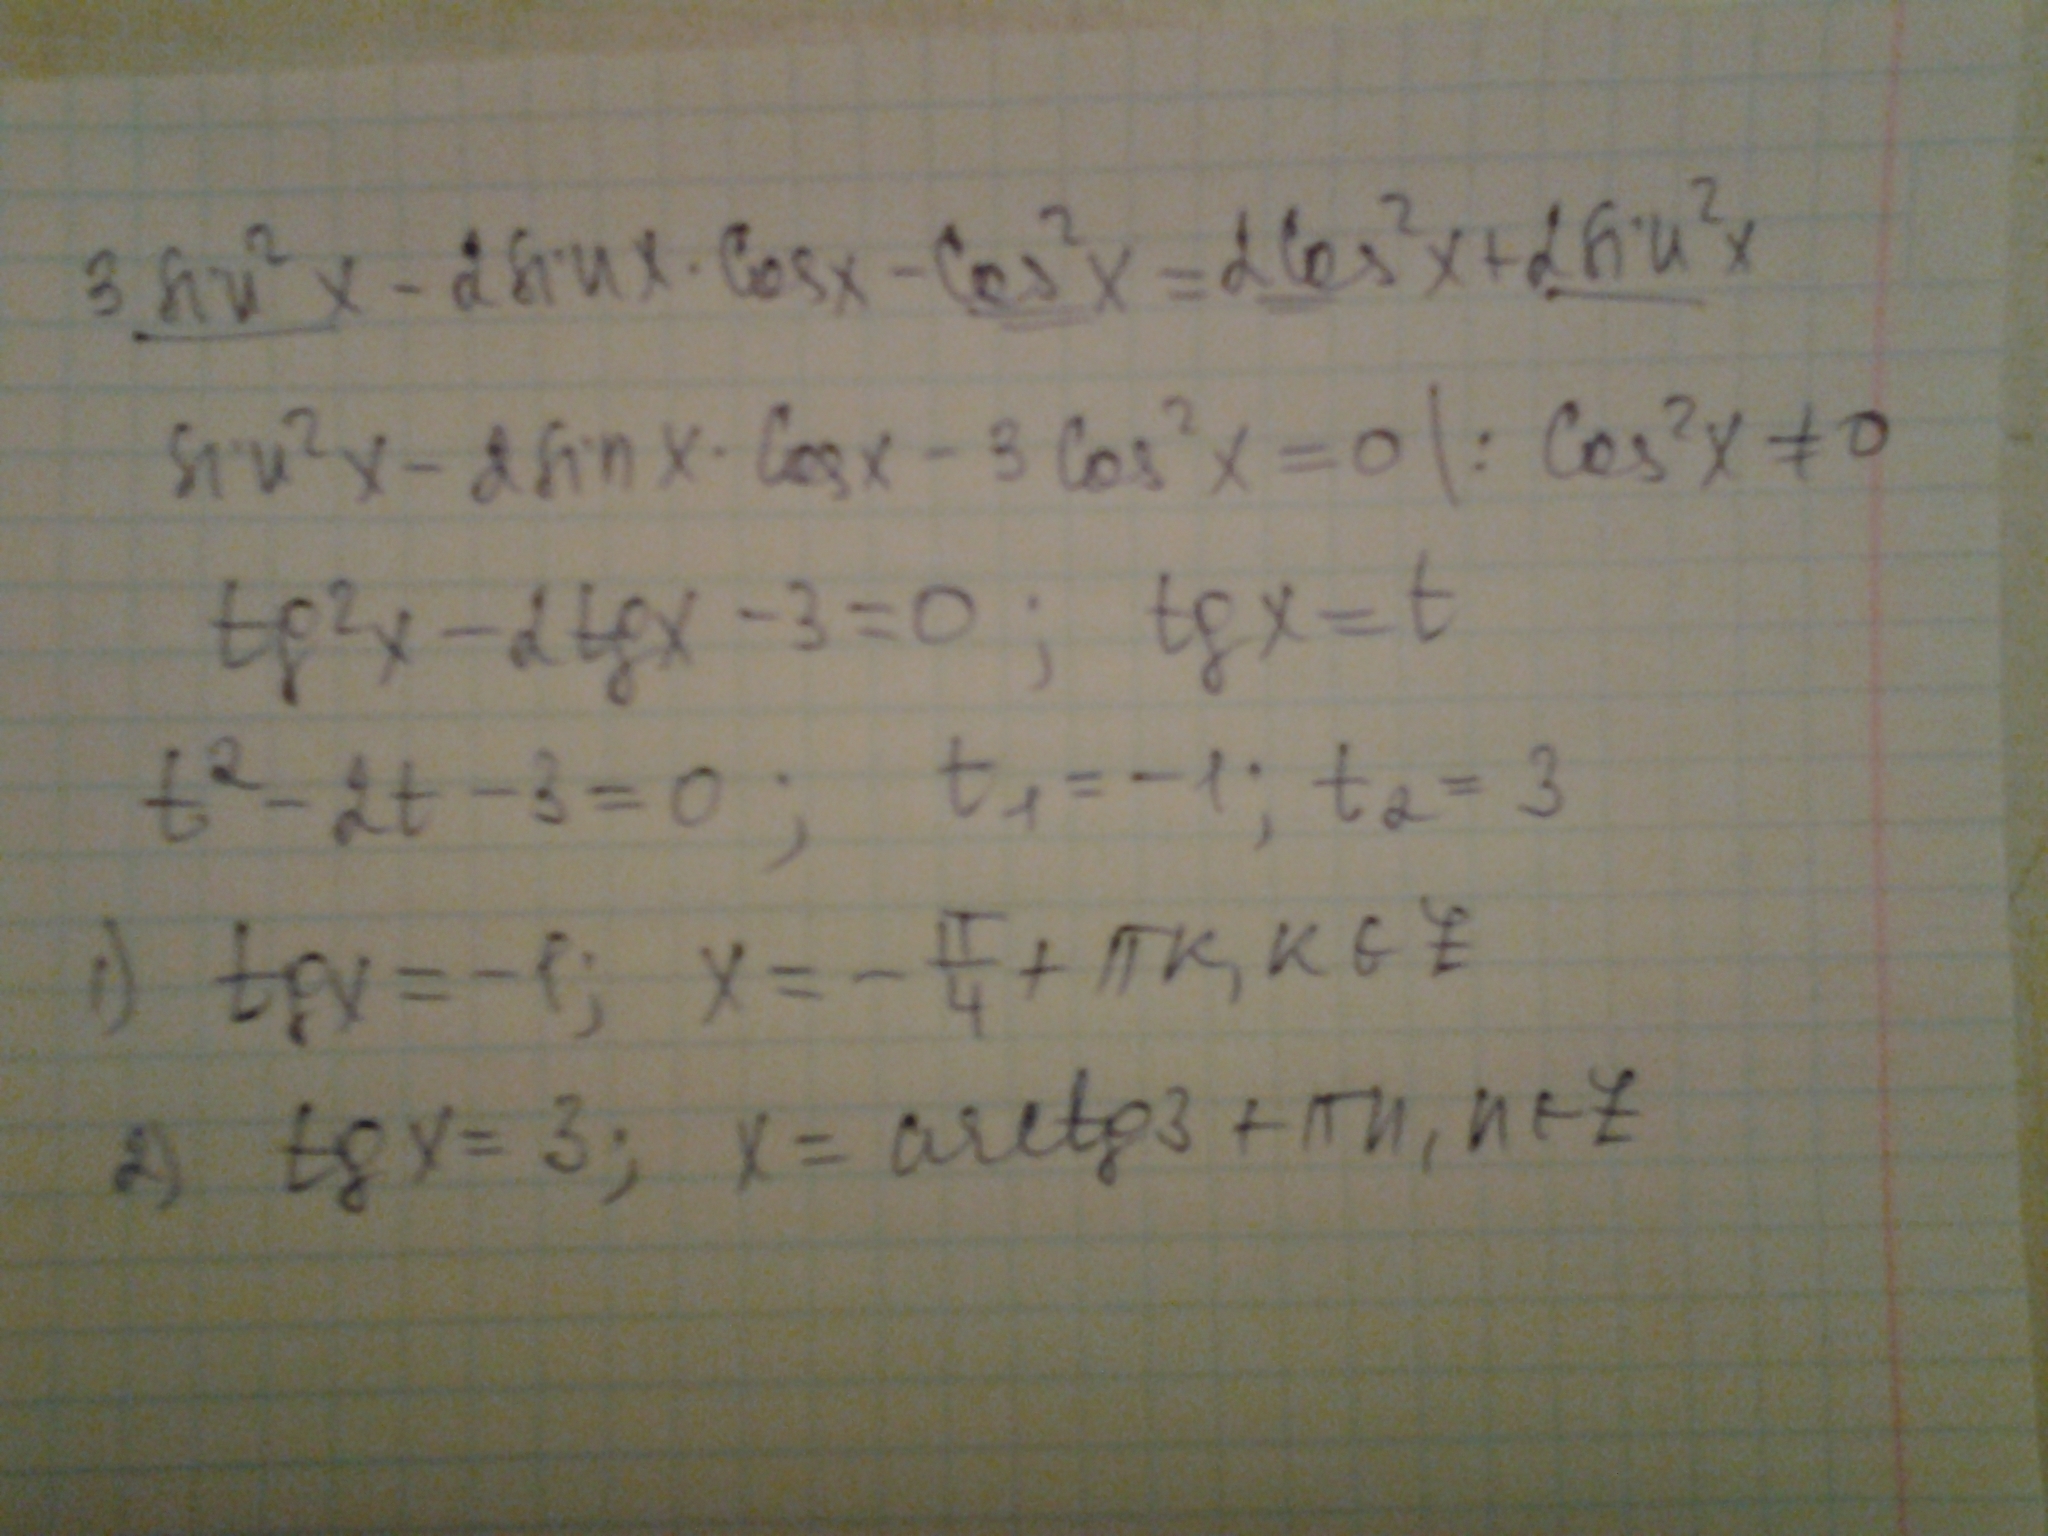 3 sin²x - 2 sin x · cos x - cos²x = 2cos²x + 2sin²x
sin²x - 2 sin x · cos x - 3 cos²x = 0 |: cos²x ≠ 0
tg²x - 2tgx - 3 = 0 ; tgx = t
t² - 2t - 3 = 0 ; t₁ = -1; t₂ = 3
1) tgx = -1; x = -π/4 + πк, к ∈ Z
2) tgx = 3; x = arctg3 + πn, n ∈ Z